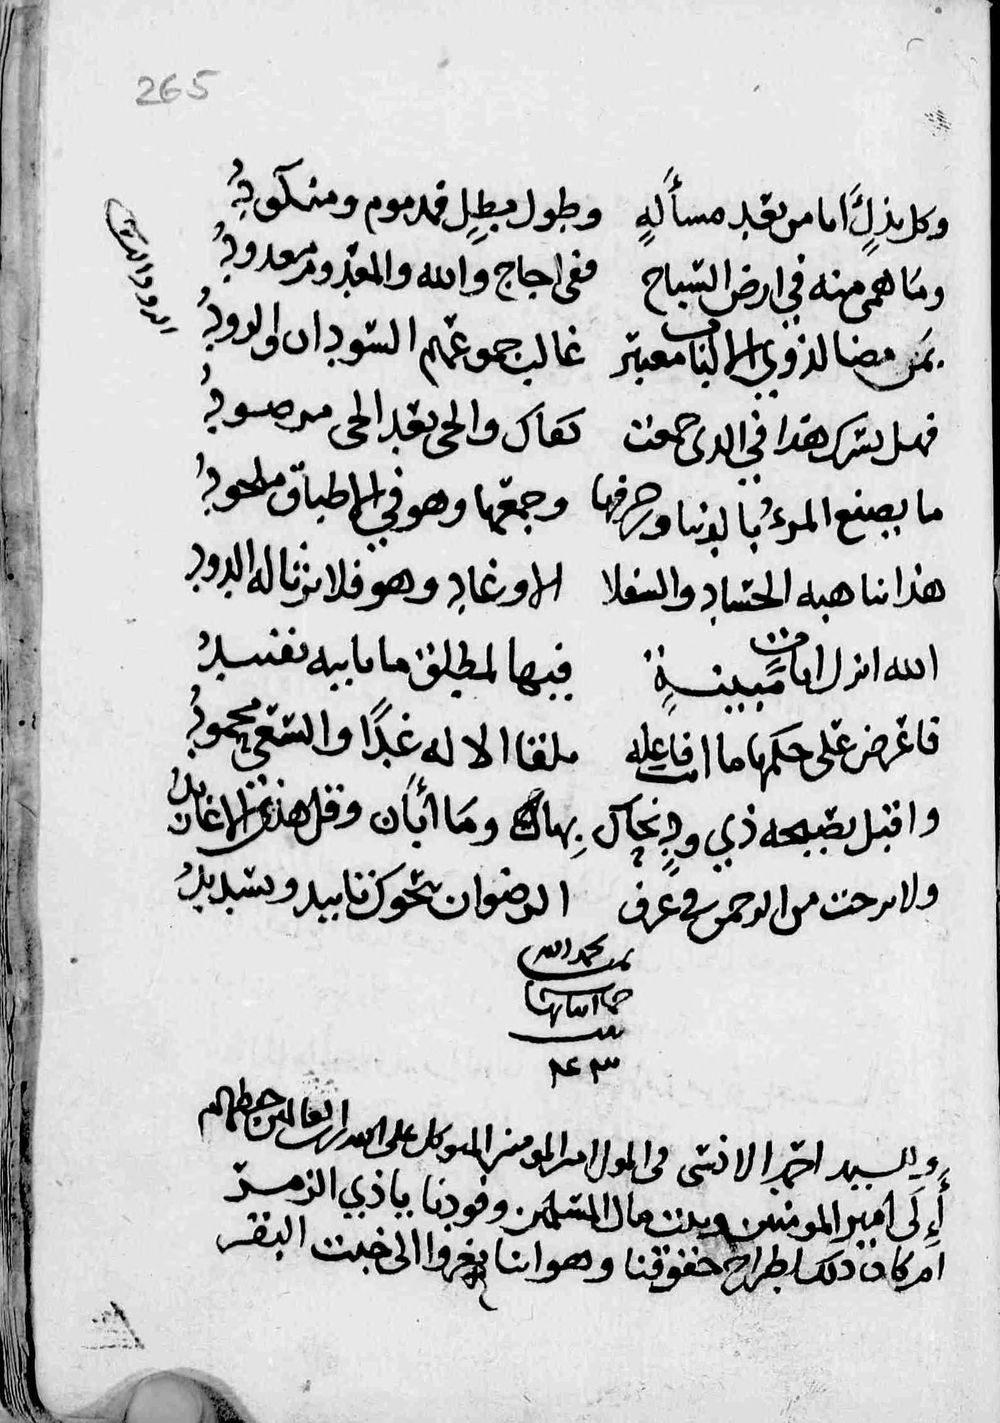 265
وكل بذلٍ اما من بعد مسألةٍ وطول مطلٍ فمذموم ومنكودُ
وما همى منه في ارض السباخ ففى اجاج والله والمعدوم معدودُ
بمن مضا لذوي الالباب معتبر غالب جموعهم السودان والدودُ
الدود والدود
فهل يسرك هذا في الذى جمعت كفاك والحى بعد الحى مرصودُ
ما يصنع المرءُ بالدنيا وزخرفها وجمعها وهو في الاطباق ملحودُ
هذا تناهبه الحساد والسفلا الاوغاد وهو فلا ترثا له الدود
الله انزل ايات مبينةٍ فيها لمطلق ما ياتيه تقييدُ
فاعرض على حكمها ما انت فاعله تلقا الاله غدًا والسعي محمودُ
واقبل نصيحه ذي ودٍ نحاك بها وما أبان وقل هذي الاغاريدُ
ولا برحت من الرحمن في غرف الرضوان نحوك تاييد وتسديدُ
تمت بحمد الله
تمت
٢٤٣
وللسيد احمد الانسى فى المولى امير المومنين المتوكل على الله رب العالمين حفظهم
أإلى امير المومنين وبيت مال المسلمين وفودنا يا ذي الزمر
ام كان ذلك اطراح حقوقنا وهواننا يغزوا الى خبت البقر